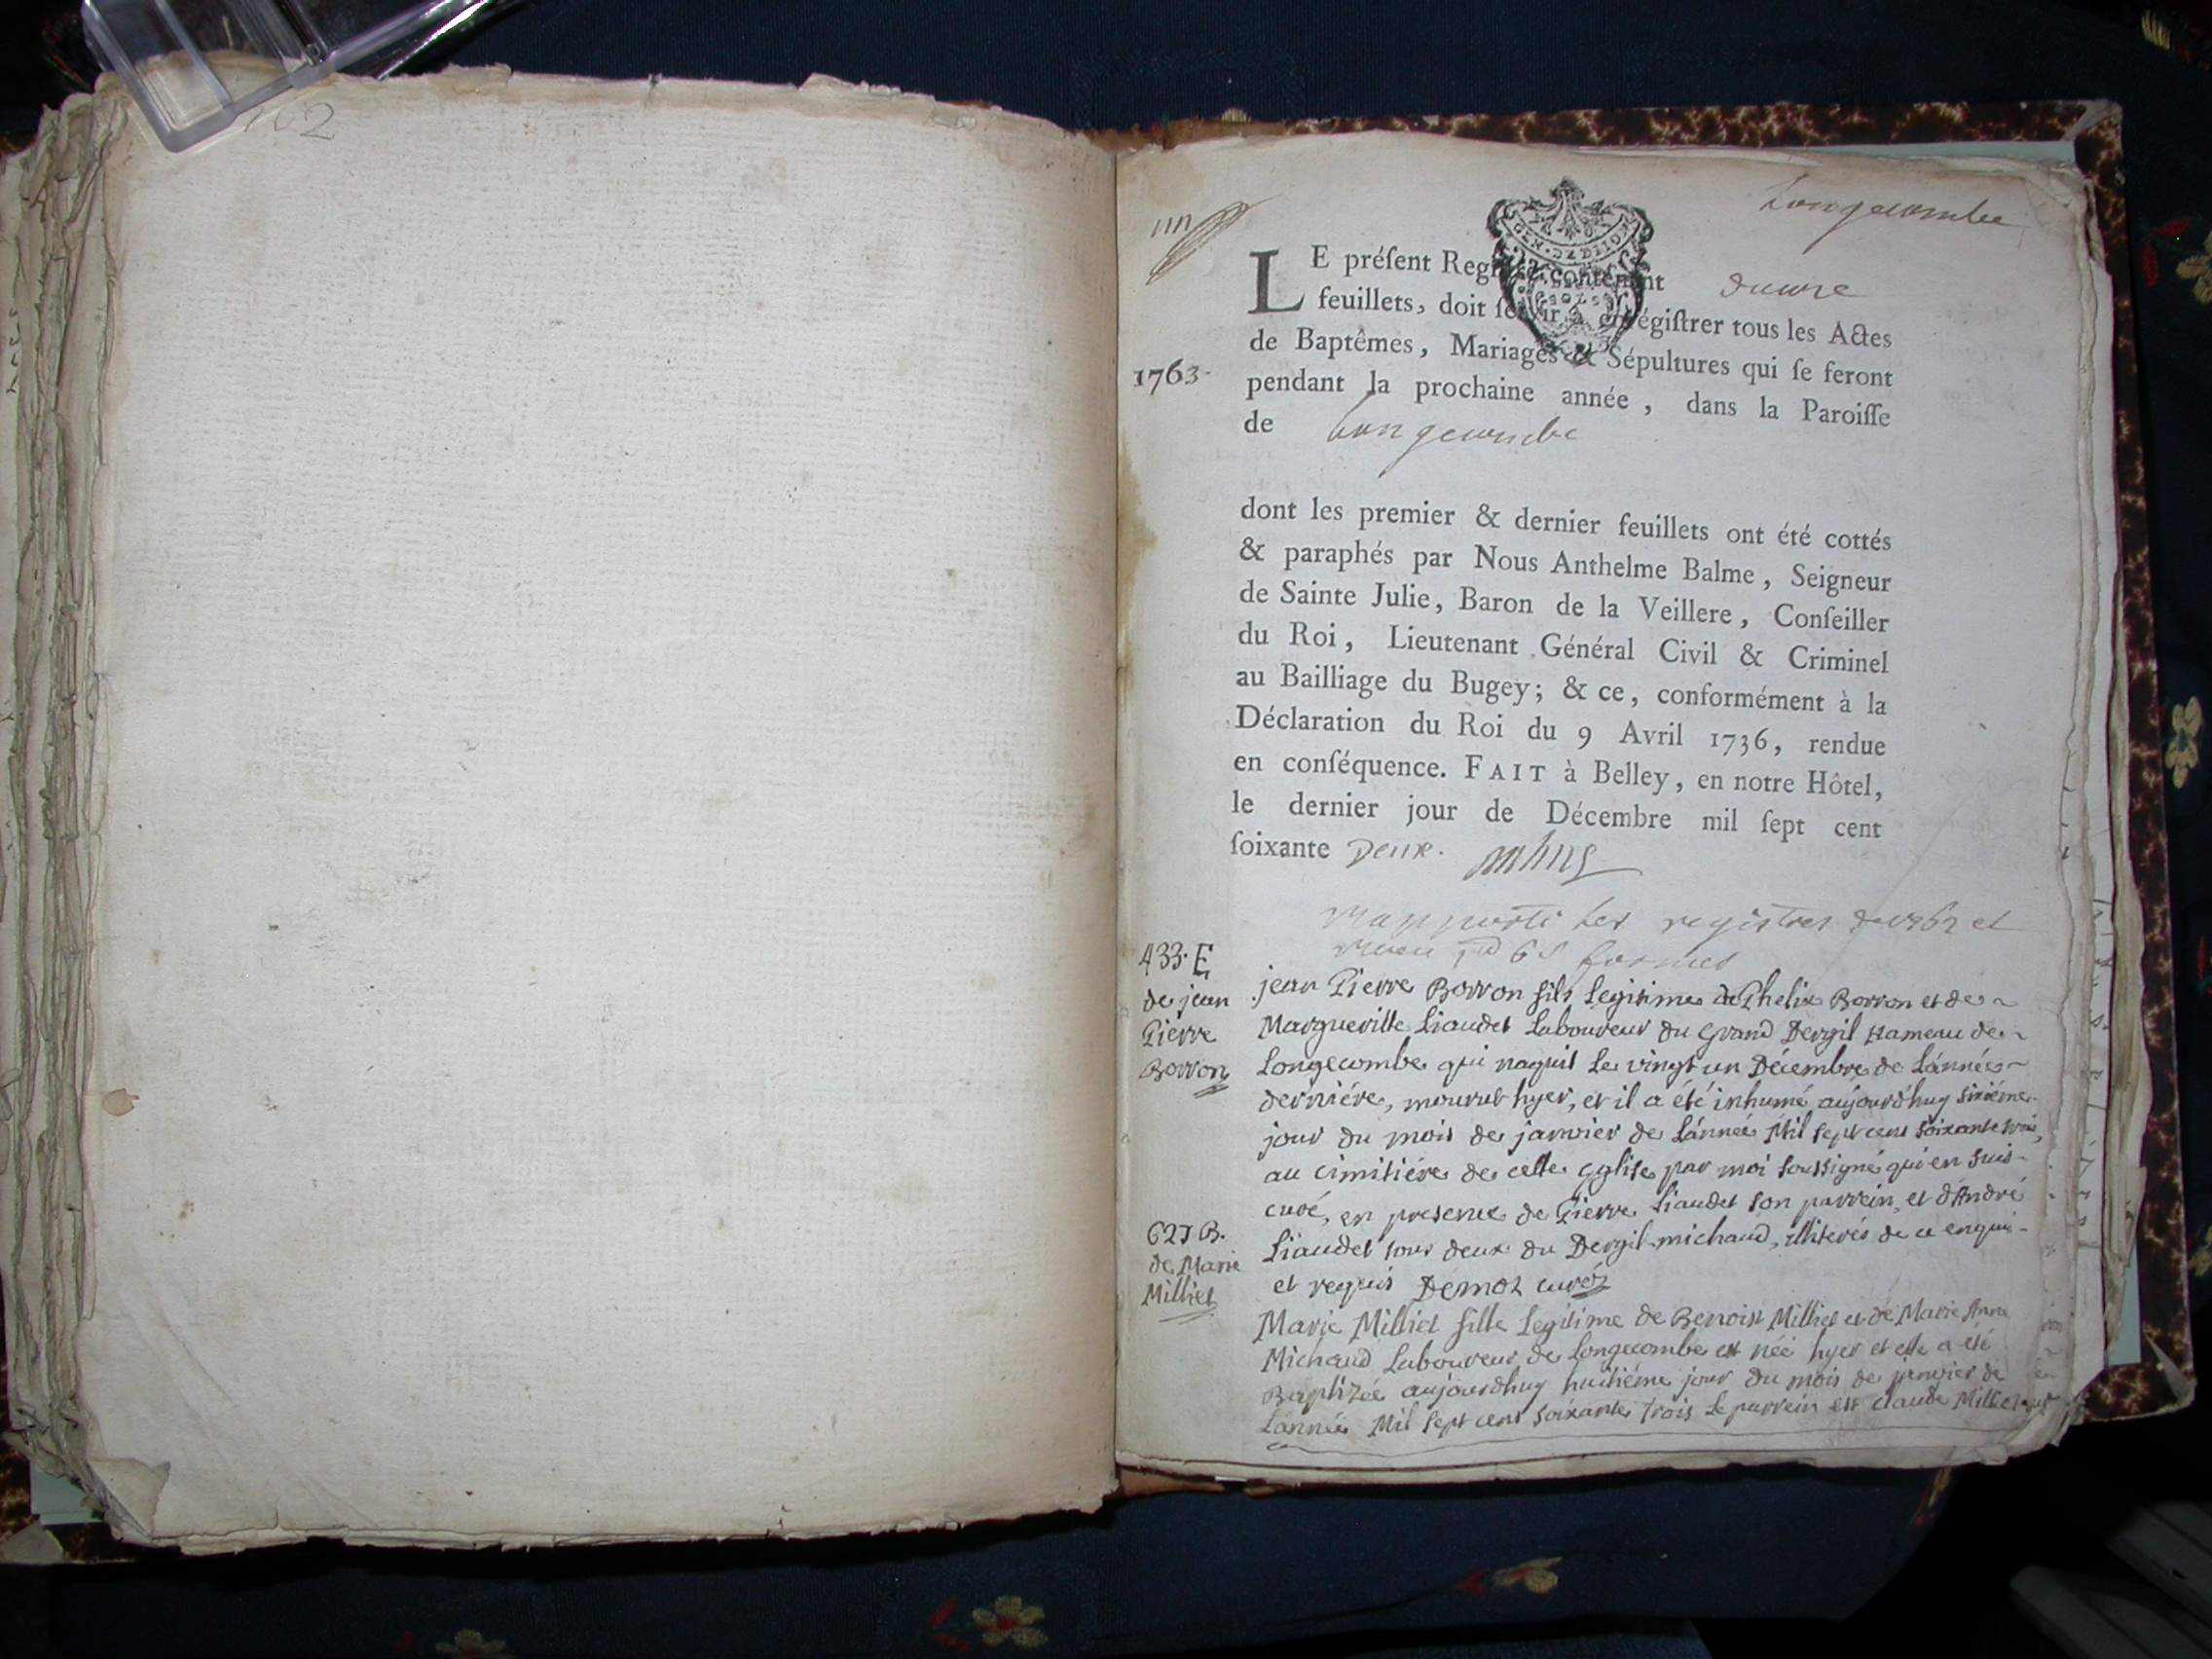 2
Longecombe
GEN. DE DIION
LE préſent Regiſtre contenant
feuillets, doit ſervir à enrégiſtrer tous les Actes
de Baptêmes, Mariages & Sépultures qui ſe feront
1763.
pendant la prochaine année, dans la Paroiſſe
de Longecombe
dont les premier & dernier feuillets ont été cottés
& paraphés par Nous Anthelme Balme, Seigneur
de Sainte Julie, Baron de la Veillere, Conſeiller
du Roi, Lieutenant Général Civil & Criminel
au Bailliage du Bugey; & ce, conformément à la
Déclaration du Roi du 9 Avril 1736, rendue
en conſéquence. FAIT à Belley, en notre Hôtel,
le dernier jour de Décembre mil ſept cent
ſoixante Deux.
les registres et
433. E
de jean
Pierre
Borron
jean Pierre Borron fils legitime de Phelix Borron et de
Margueritte Liaudet Laboureur du Grand Dergil hameau de
Longecombe qui naquit le vingt un Décembre de L'année
derniére, mourut hyer, et il a été inhumé aujourdhuy sixiéme
jour du mois de janvier de L'année Mil sept cent soixante trois,
au cimitiére de cette Eglise par moi soussigné qui en suis
curé, en presence de Pierre Liaudet son parrein, et d'André
Liaudet tous deux du Dergil-michaud, illiterés de ce enquis
et requis Demoz curé
627 B.
de Marie
Milliet
Marie Milliet fille Legitime de Benoist Milliet et de Marie Anne
Michaud Laboureur de Longecombe est née hyer et elle a été
Baptizée aujourdhuy huitiéme jour du mois de janvier de
L'année Mil sept cent soixante trois le parrein est claude Milliet